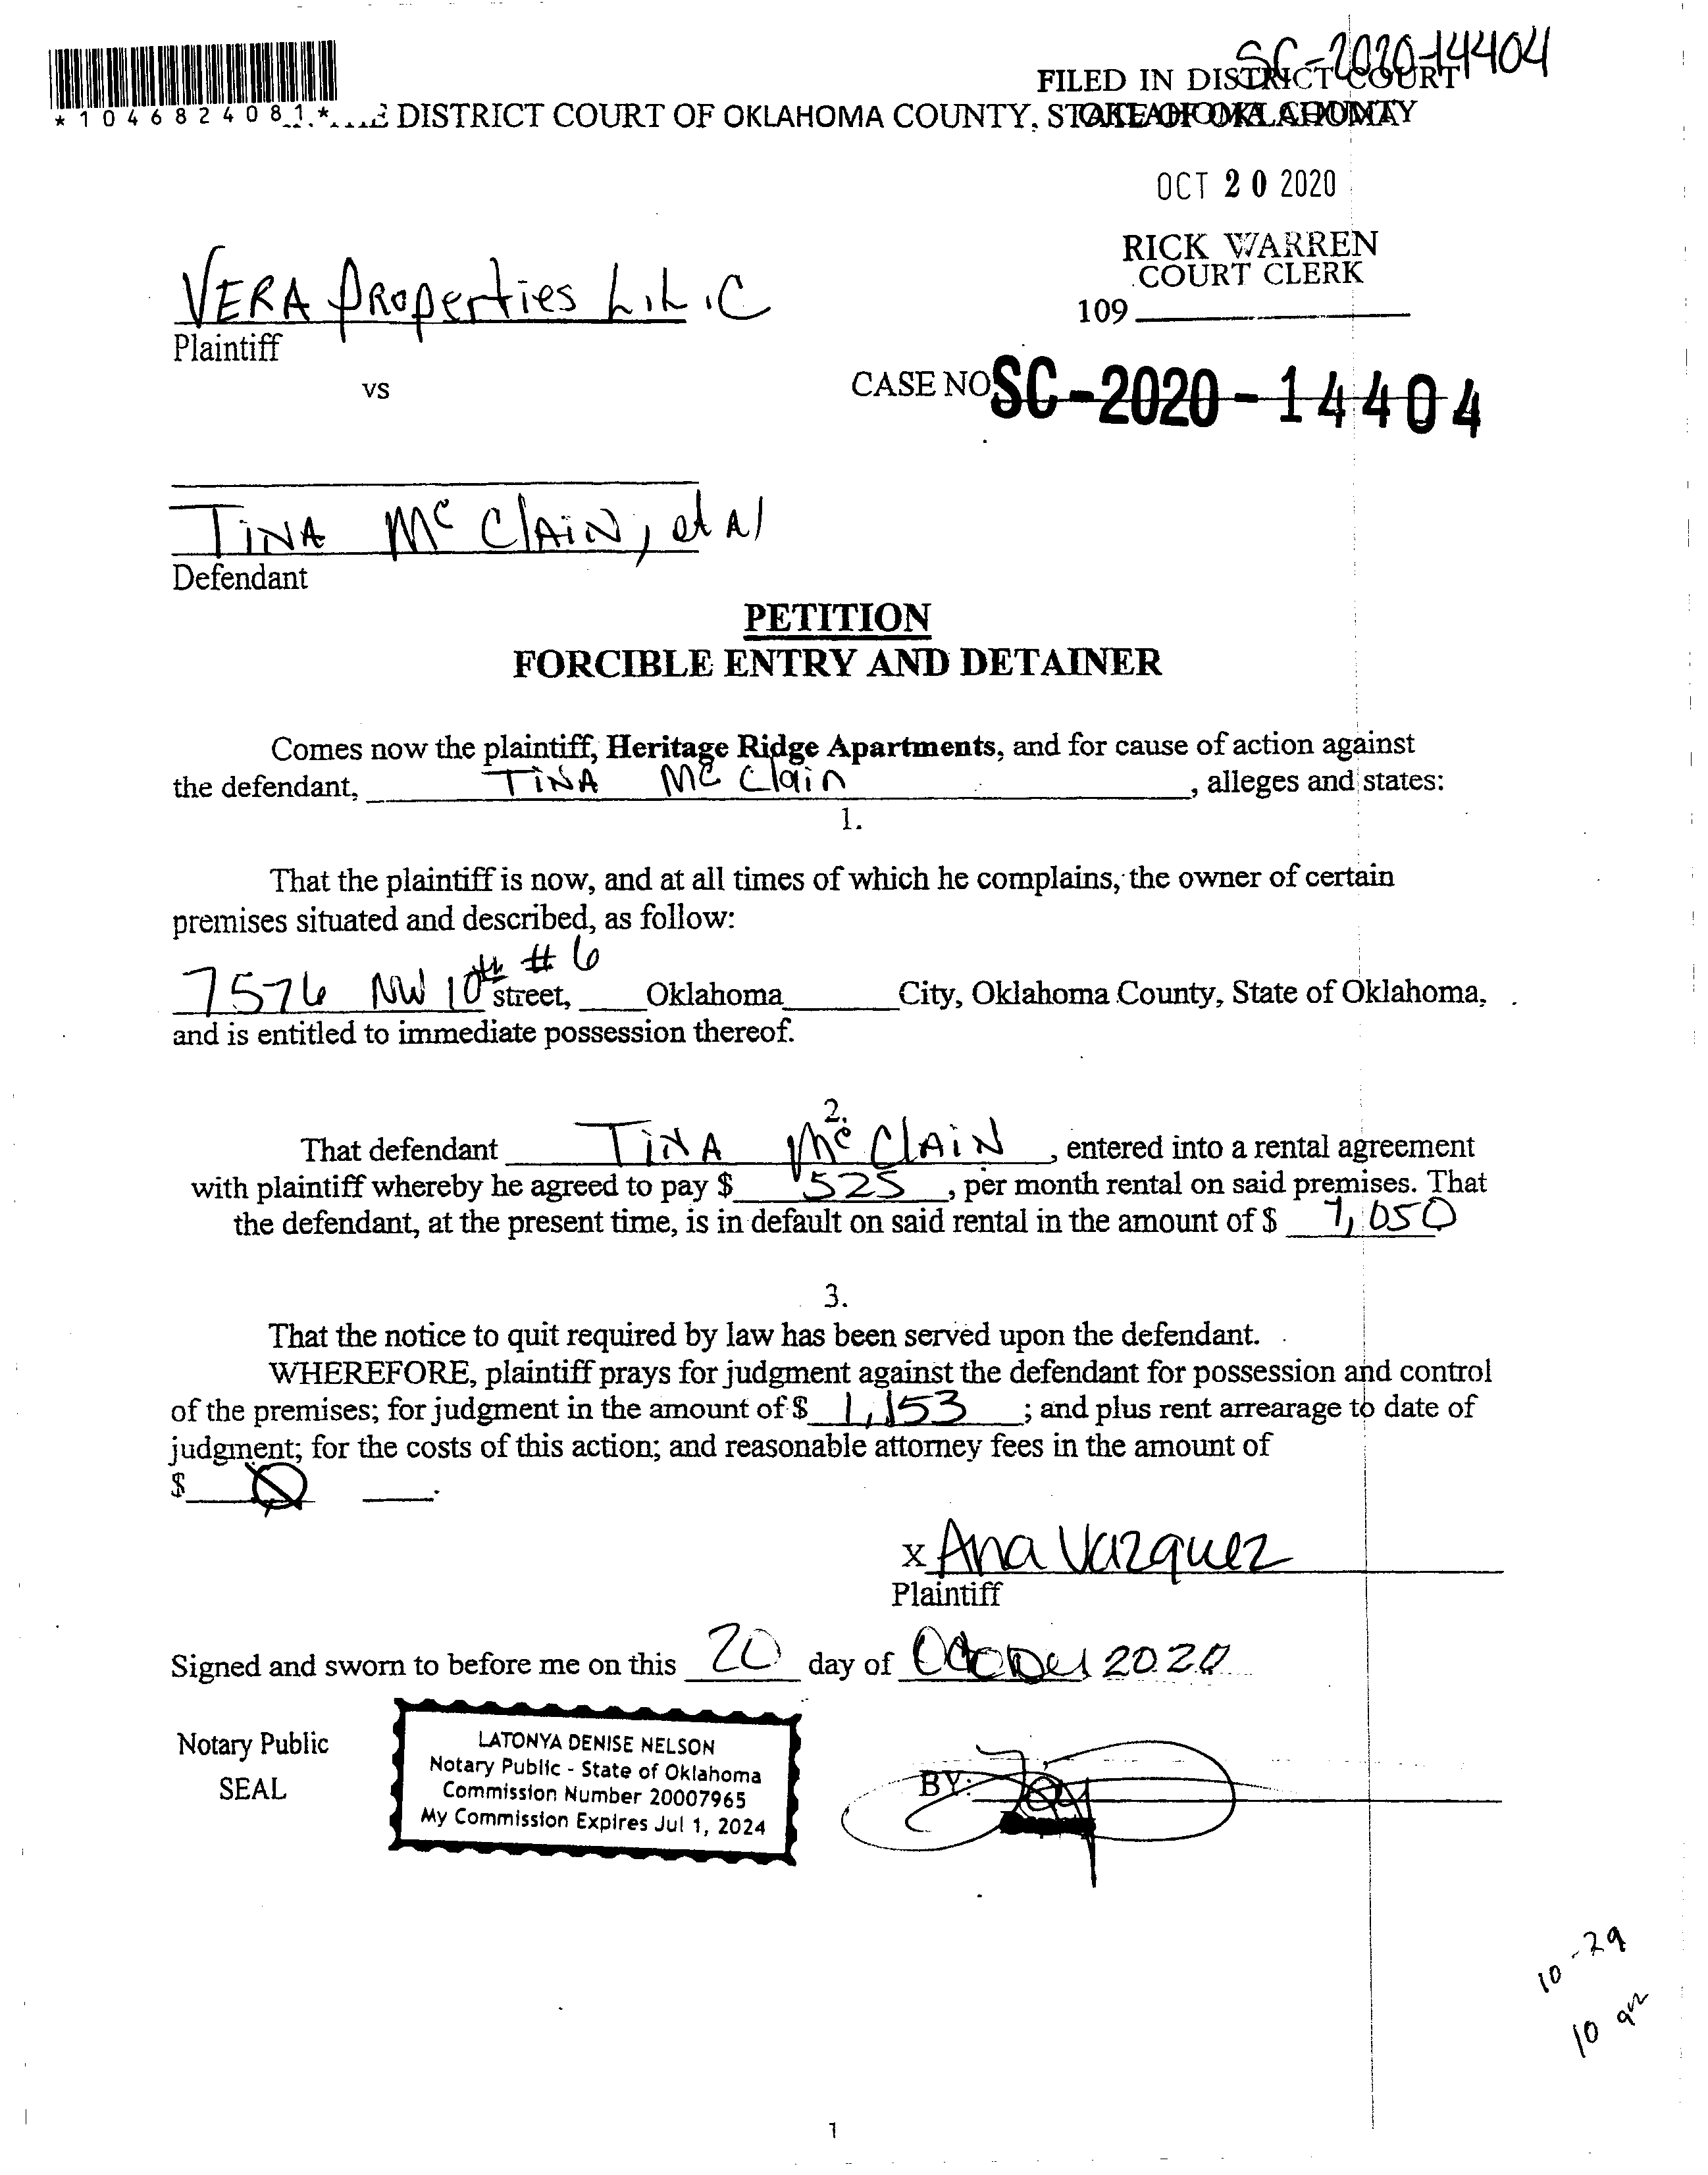 SC-2020-14404
FILED IN DISTRICT COURT
OKLAHOMA COUNTY
*1046824081*
DISTRICT COURT OF OKLAHOMA COUNTY, STATE OF OKLAHOMA
OCT 20 2020
RICK WARREN
COURT CLERK
109
VERA Properties L.L.C
Plaintiff
vs
CASE NO. SC-2020-14404
TINA McCLAIN, et Al
Defendant
PETITION
FORCIBLE ENTRY AND DETAINER
Comes now the plaintiff, Heritage Ridge Apartments, and for cause of action against
the defendant, TINA McClain, alleges and states:
1.
That the plaintiff is now, and at all times of which he complains, the owner of certain
premises situated and described, as follow:
7576 NW 10th #6 street, Oklahoma City, Oklahoma County, State of Oklahoma,
and is entitled to immediate possession thereof.
2.
That defendant TINA McCLAIN, entered into a rental agreement
with plaintiff whereby he agreed to pay $ 525, per month rental on said premises. That
the defendant, at the present time, is in default on said rental in the amount of $ 1,050
3.
That the notice to quit required by law has been served upon the defendant.
WHEREFORE, plaintiff prays for judgment against the defendant for possession and control
of the premises; for judgment in the amount of $ 1,153; and plus rent arrearage to date of
judgment; for the costs of this action; and reasonable attorney fees in the amount of
$ Ø.
x Ana Vazquez
Plaintiff
Signed and sworn to before me on this 20 day of October 2020
Notary Public
SEAL
LATONYA DENISE NELSON
Notary Public - State of Oklahoma
Commission Number 20007965
My Commission Expires Jul 1, 2024
BY:
10-29
10 am
1